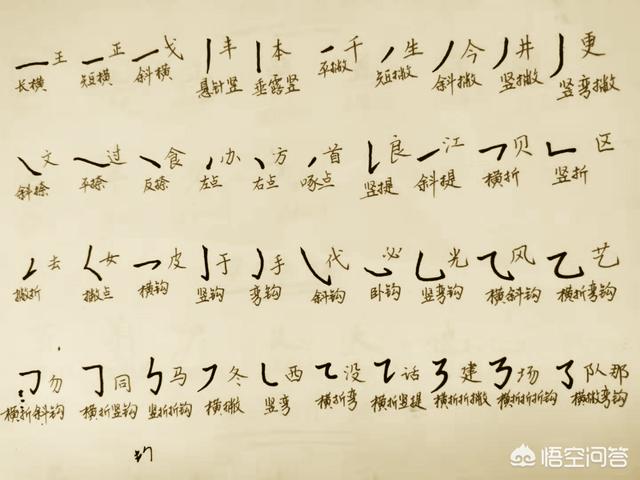 一王 一正 一戈 丨丰 丨本 丿千 丿生 丿今 丿井 丿更
长横 短横 斜横 悬针竖 垂露竖 平撇 短撇 斜撇 竖撇 竖弯撇
文 过 食 办 方 首 良 江 贝 区
斜捺 平捺 反捺 左点 右点 啄点 竖提 斜提 横折 竖折
去 女 皮 于 手 代 必 光 风 艺
撇折 撇点 横钩 竖钩 弯钩 斜钩 卧钩 竖弯钩 横斜钩 横折弯钩
勿 同 马 冬 西 没 话 建 场 队那
横折斜钩 横折竖钩 竖折折钩 横撇 竖弯 横折弯 横折竖提 横折折撇 横折折折钩 横撇弯钩
悟空问答